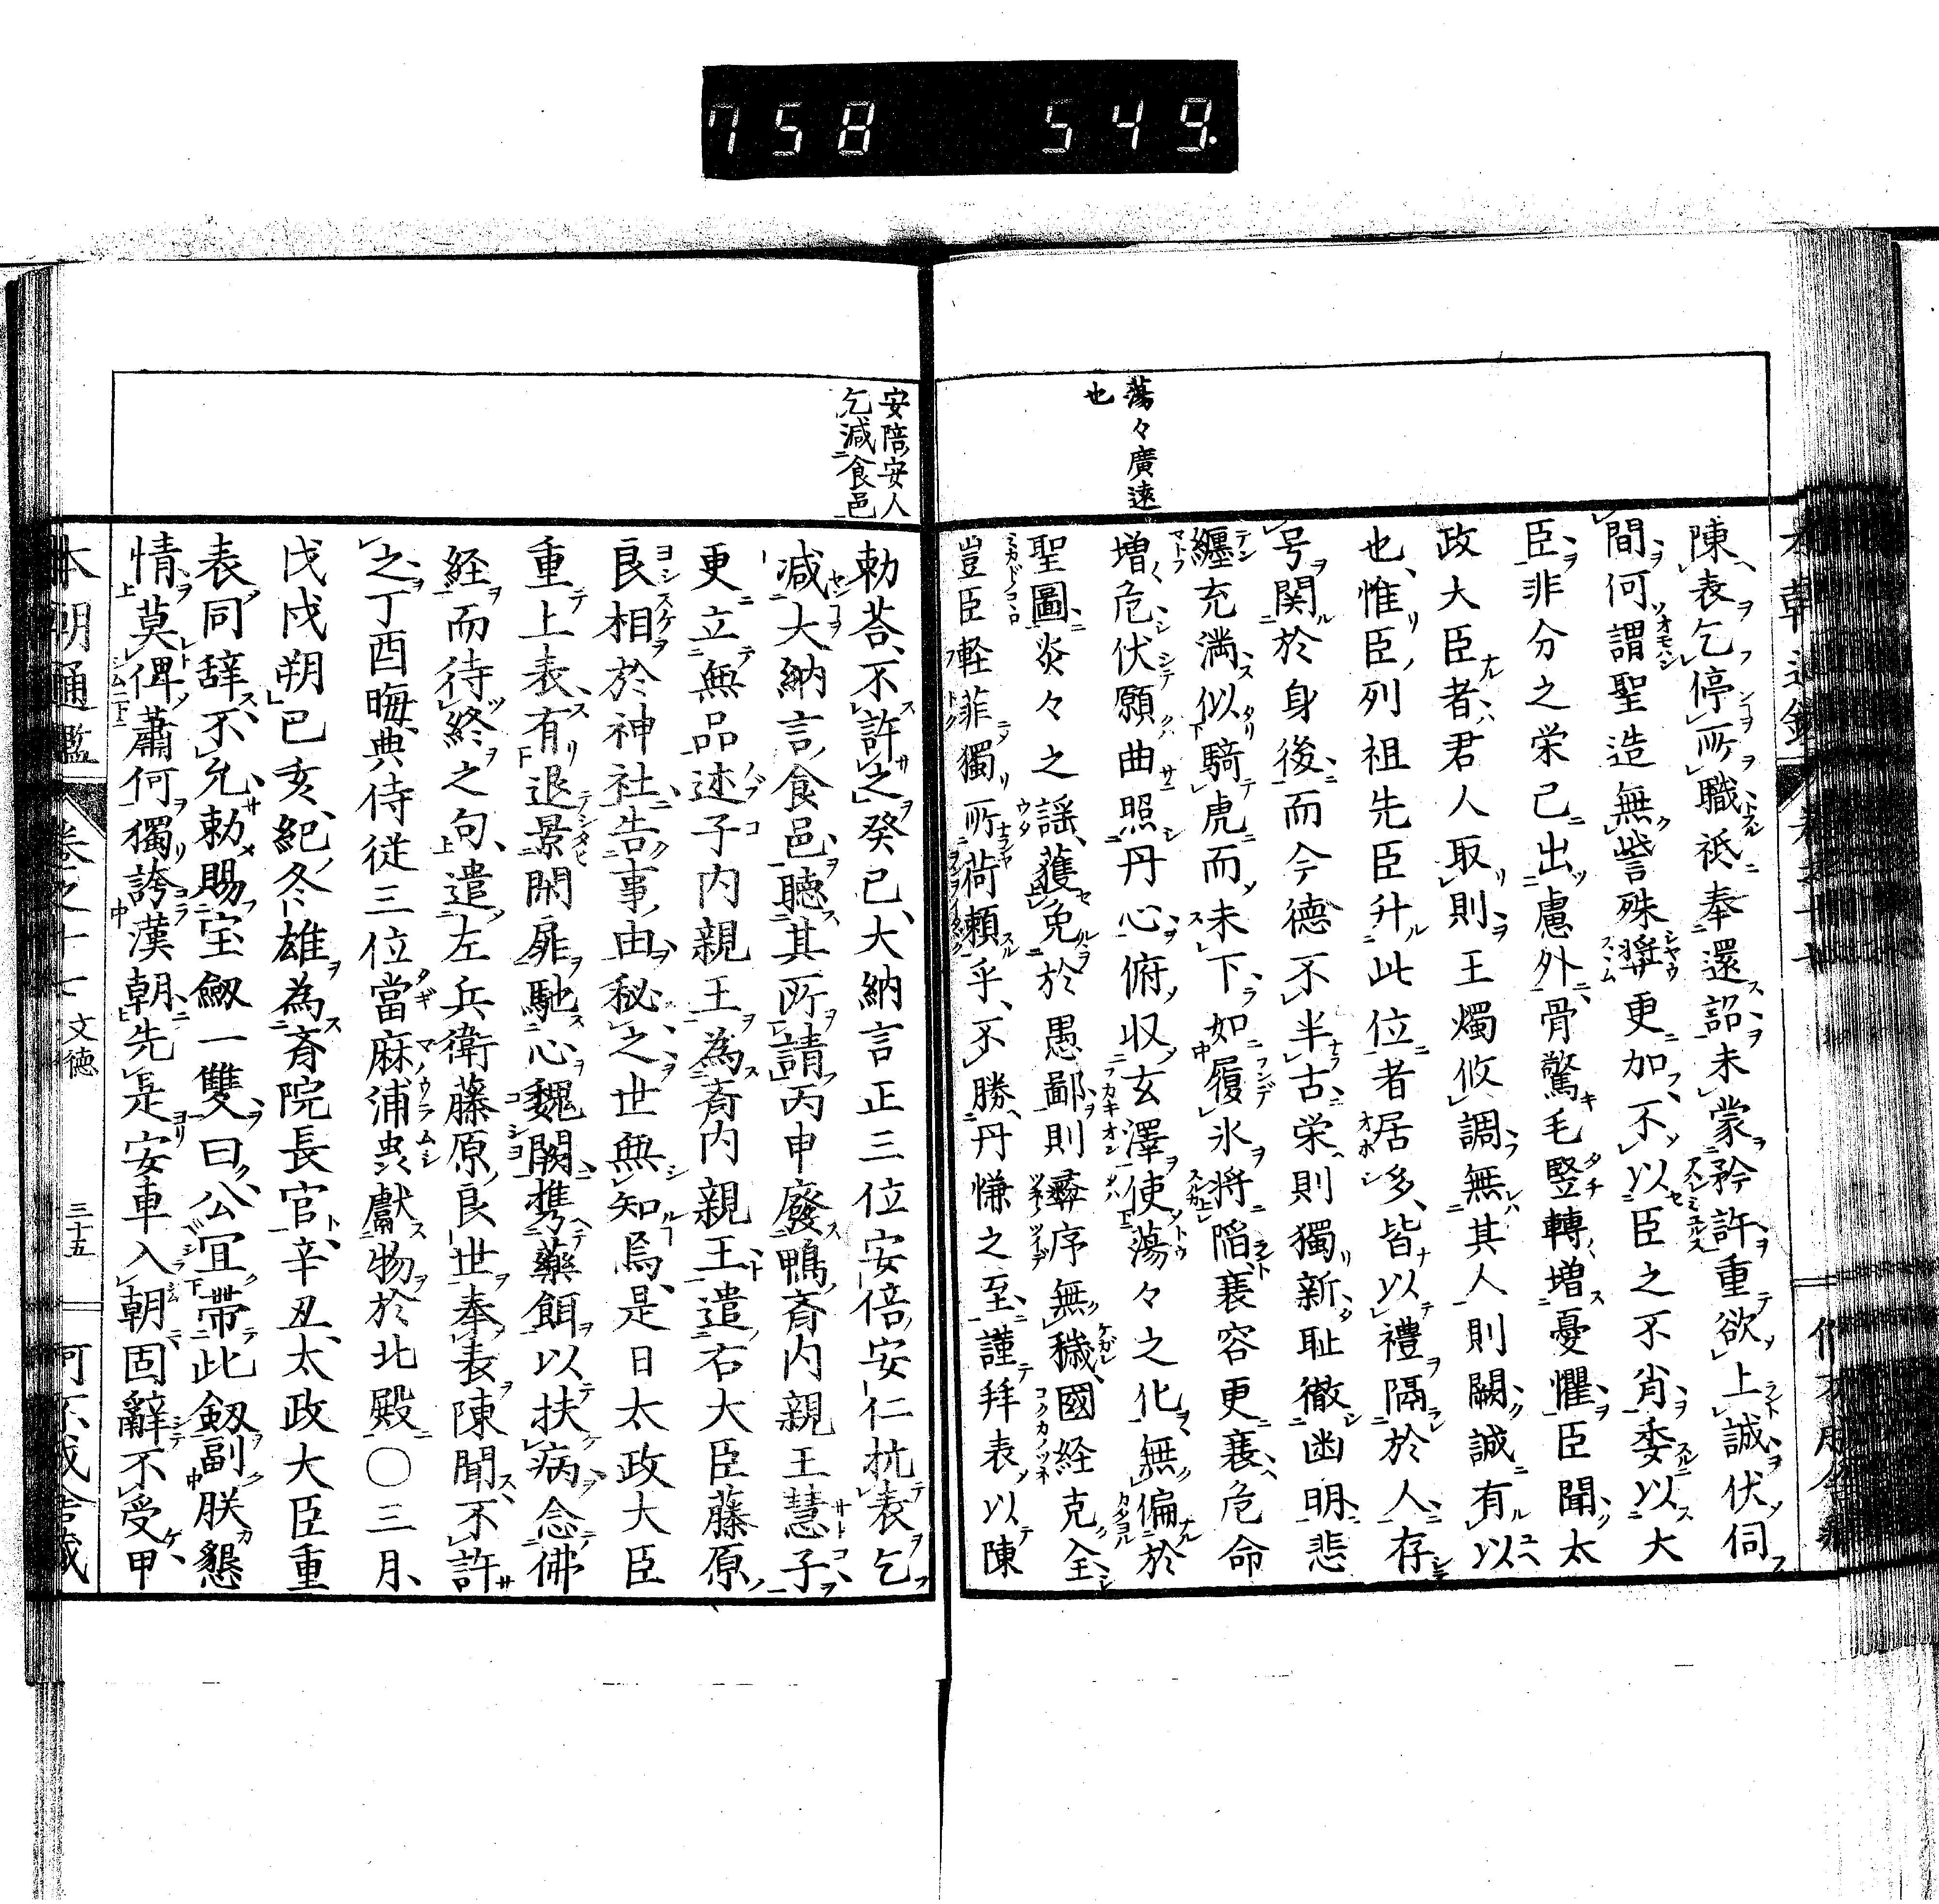 758 549
蕩々廣遠
也
陳表乞停所職祇奉還詔未蒙矜許重欲上誠伏伺
間何謂聖造無訾殊奨更加不以臣之不肖委以大
臣非分之栄已出慮外骨驚毛竪轉増憂懼臣聞太
政大臣者君人取則王燭攸調無其人則闕誠有以
也惟臣列祖先臣升此位者居多皆以禮隔於人存
号関於身後而今德不半古栄則獨新耻徹幽明悲
纏充満似騎虎而未下如履氷将陥蓑容更蓑危命
増危伏願曲照丹心俯収玄澤使蕩々之化無偏於
聖圖炎々之謡獲免於愚鄙則彝序無穢國経克全
豈臣軽菲獨所荷頼乎不勝丹慊之至謹拜表以陳
安陪安人
乞減食邑
勅荅不許之癸已大納言正三位安倍安仁抗表乞
減大納言食邑聴其所請丙申廢鴨斎内親王慧子
更立無品述子内親王為斎内親王遣右大臣藤原
良相於神社告事由秘之世無知焉是日太政大臣
重上表有退景閑扉馳心魏闕携藥餌以扶病念佛
経而待終之句遣左兵衛藤原良世奉表陳聞不許
之丁酉晦典侍従三位當麻浦虫獻物於北殿〇三月
戊戌朔已亥紀冬雄為斎院長官辛丑太政大臣重
表同辞不允勅賜宝劔一雙曰公宜帯此劔副朕懇
情莫俾蕭何獨誇漢朝先是安車入朝固辭不受甲
本朝通鑑 卷之十七 文徳 三十五